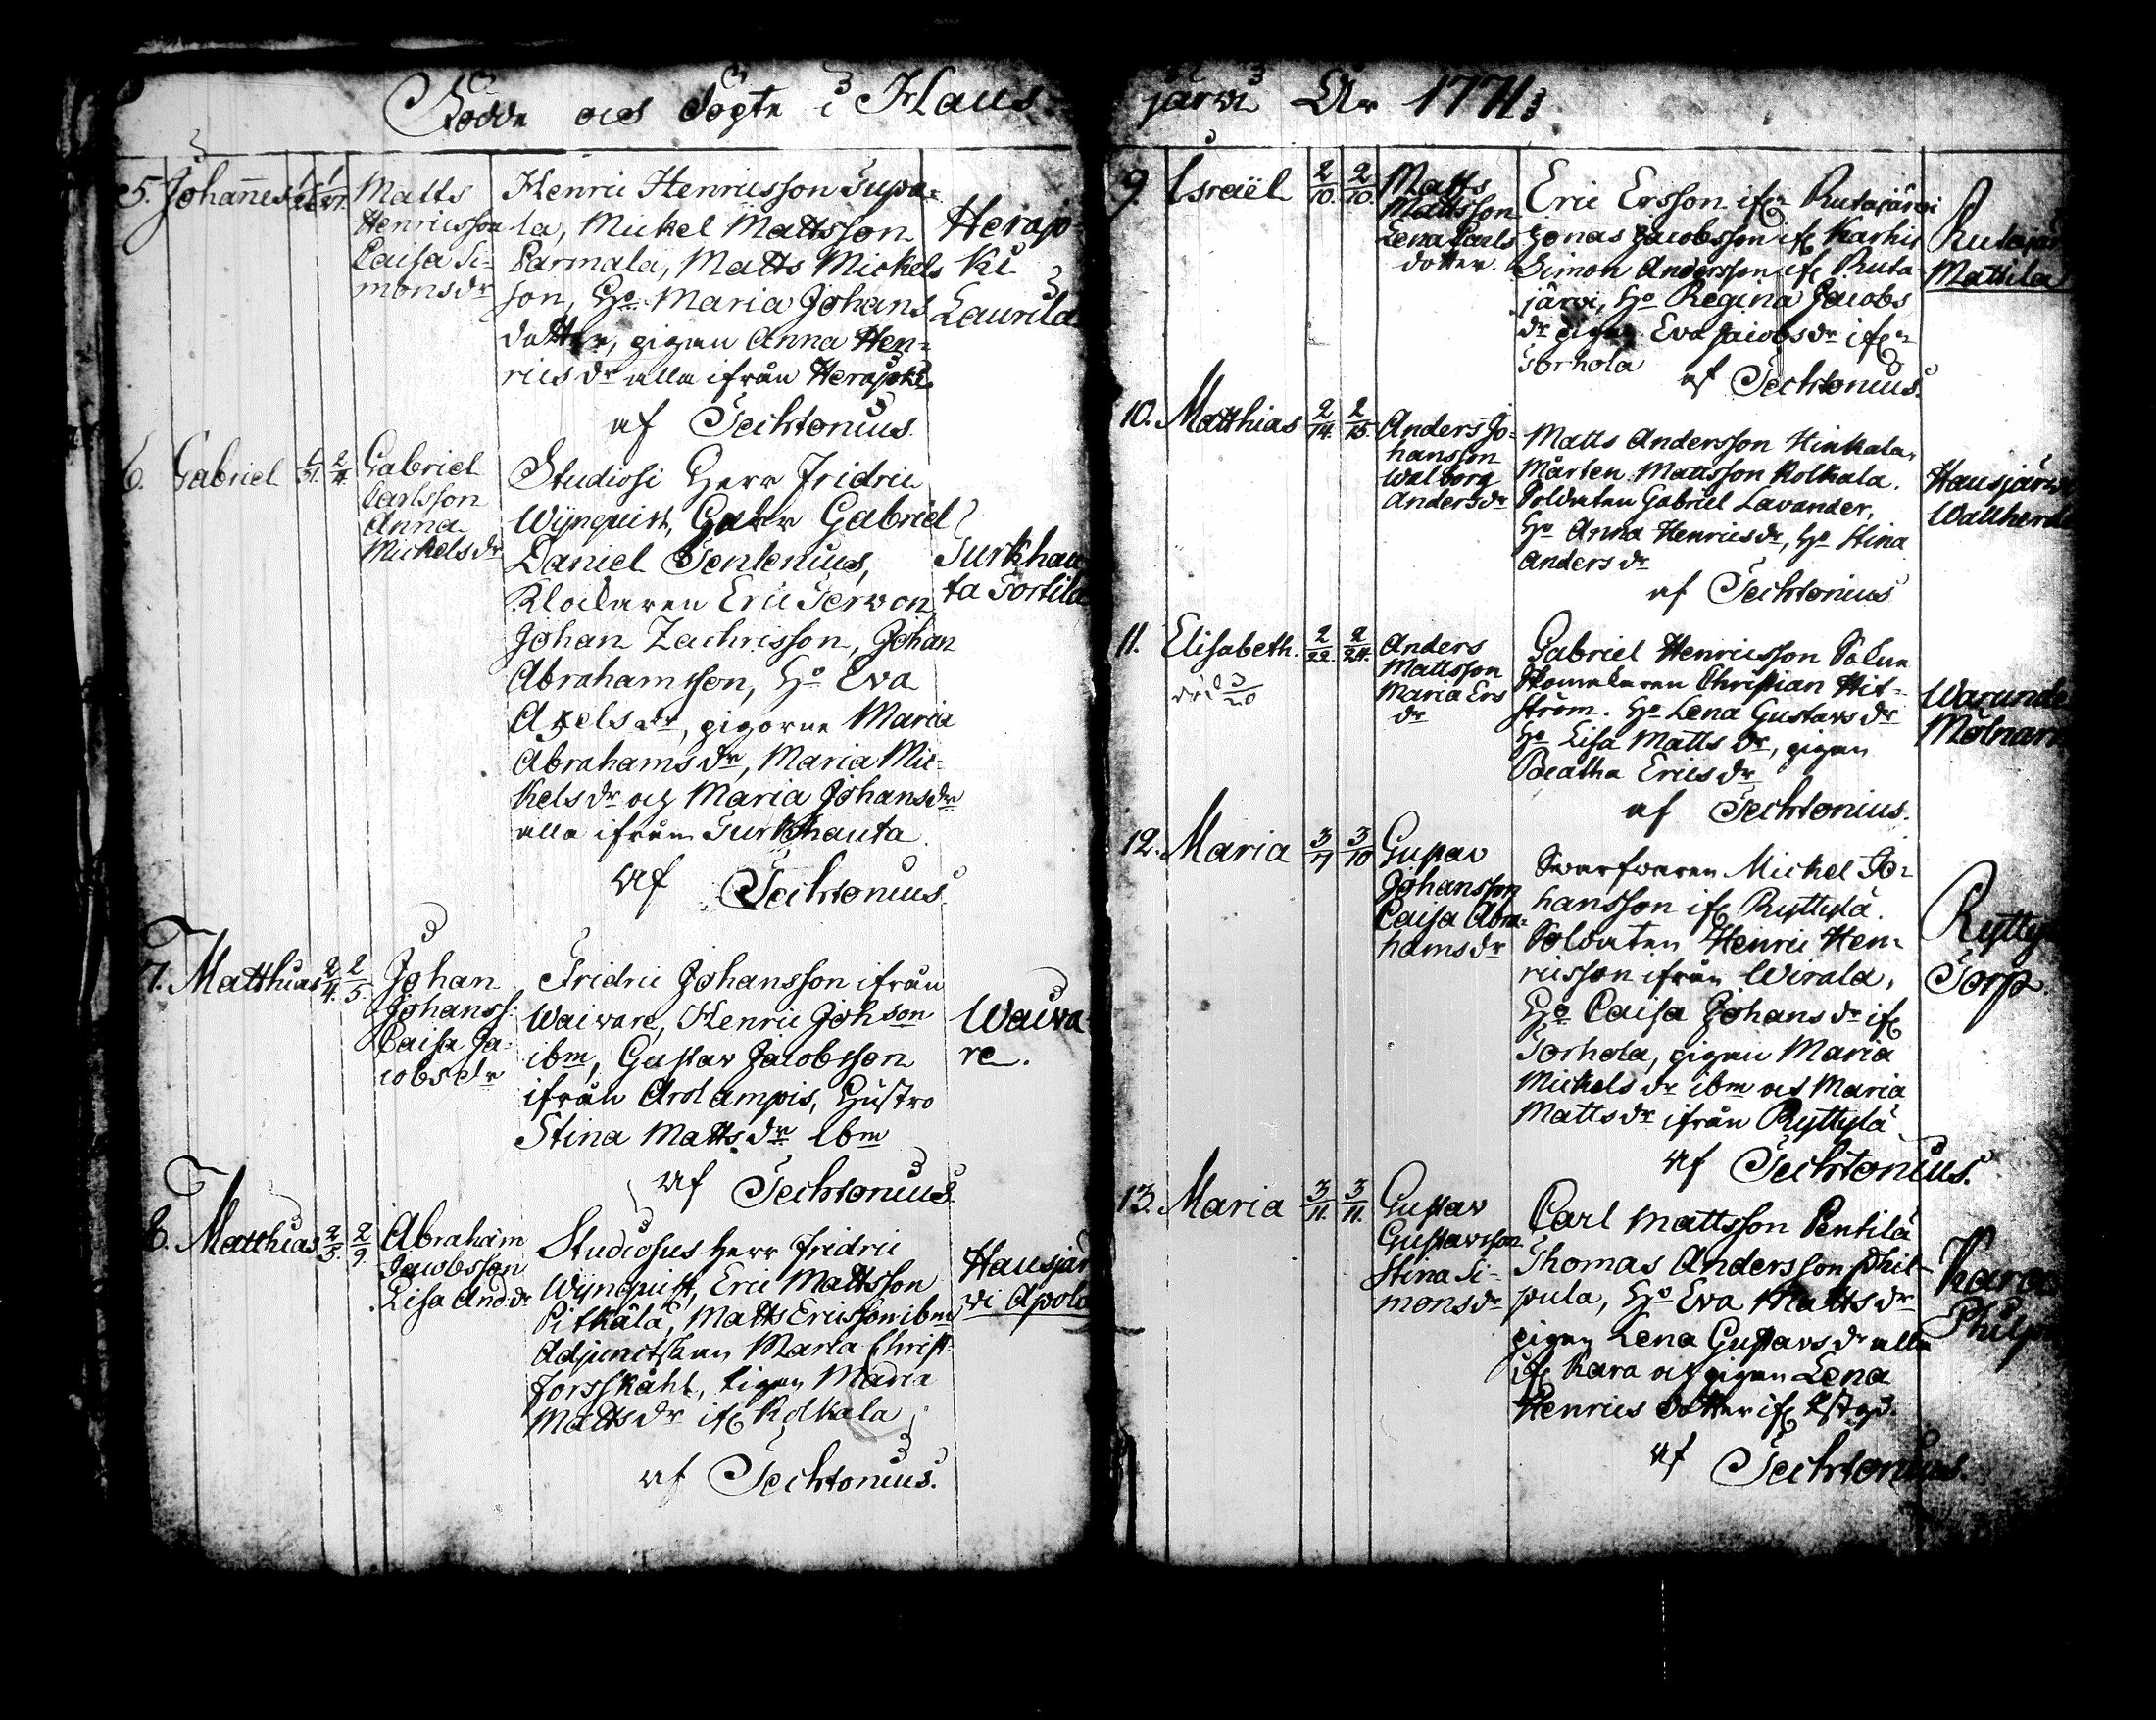 Födde och Döpte i Haus-
5. Johannes
Matts
Henricsson
Caisa Si-
monsdr
Henric Henricsson Supa-
la, Mickel Mattsson
Parmala, Matts Mickels
son, Ho Maria Johans
dotter, pigan Anna Hen-
rics dr alla ifrån Herajoki.
af Techtonius.
Herajo-
ki
Laurila
6. Gabriel 1/31. 2/4.
Gabriel
Carlsson
Anna
Mickels dr
Studiosi Herr Fridric
Wijnquist, Gabriel
Daniel
Klockaren Eric Servon,
Johan Zachrisson, Johan
Abrahamsson, Ho Eva
Axelsdr, pigorne Maria
Abrahams dr, Maria Mic-
kels dr och Maria Johans dr
alla ifrån Turkhauta.
af Techtonius.
Turkhau-
ta Tortila
7. Matthias 2/4. 2/5.
Johan
Johanss.
Caisa Ja-
cobs dr
Fridric Johansson ifrån
Waiware, Henric Johson
ibm, Gustav Jacobsson
ifrån Arolampis, Hustro
Stina Matts dr ibm
af Techtonius.
Waiwa-
re.
8. Matthias 2/5. 2/9.
Abraham
Jacobsson
Lisa And.dr
Studiosus Herr Fridric
Wijnquist, Eric Mattsson
Pitkälä, Matts Ericsson ibm
Adjunctskan Maria Christ.
Forsskåhl, Pigan Maria
Matts dr ifr Kolkala
af Techtonius.
Hausjär
vi Apola
järvi År 1771
9. Israël 2/10. 2/10.
Matts
Mattsson
Lena Carls
dotter.
Eric Ersson ifrn Rutajärvi
Jonas Jacobsson ifr Karhi
Simon Andersson ifr Ruta
järvi, Ho Regina Jacobs
dr pigan Eva Jacobs dr ifrn
Torhola
af Techtonius.
Rutajär
Mattila
10. Matthias 2/14. 2/15.
Anders Jo-
hansson
Walborg
Anders dr
Matts Andersson Hinkala,
Mårten Mattsson Kolkala.
Soldaten Gabriel Lavander,
Ho Anna Henrics dr, Ho Stina
Anders dr
af Techtonius
Hausjärv
11. Elisabeth. 2/22. 2/24.
3/20
Anders
Mattsson
Maria Ers
dr
Gabriel Henricsson
Skomakaren Christian Hit-
ström. Ho Lena Gustavs dr
Ho Lisa Matts dr, pigan
Beatha Erics dr
af Techtonius.
12. Maria 3/7 3/10
Gustav
Johansson
Caisa Abra-
hams dr
Swarfvaren Mickel Jo-
hansson ifr Ryttylä.
Soldaten Henric Hen-
ricsson ifrån Wirala,
Ho Caisa Johans dr ifr
Torhola, pigan Maria
Mickels dr ibm och Maria
Matts dr ifrån Ryttylä
af Techtonius.
Rytty
Torp.
13. Maria 3/11. 3/11.
Gustav
Gustavsson
Stina Si-
mons dr
Carl Mattsson Pentilä
Thomas Andersson Phil-
pula, Ho Eva Matts dr
pigan Lena Gustavs dr alla
ifr Kara och pigan Lena
Henrics dotter ifr
af Techtonius.
Kara
Philp